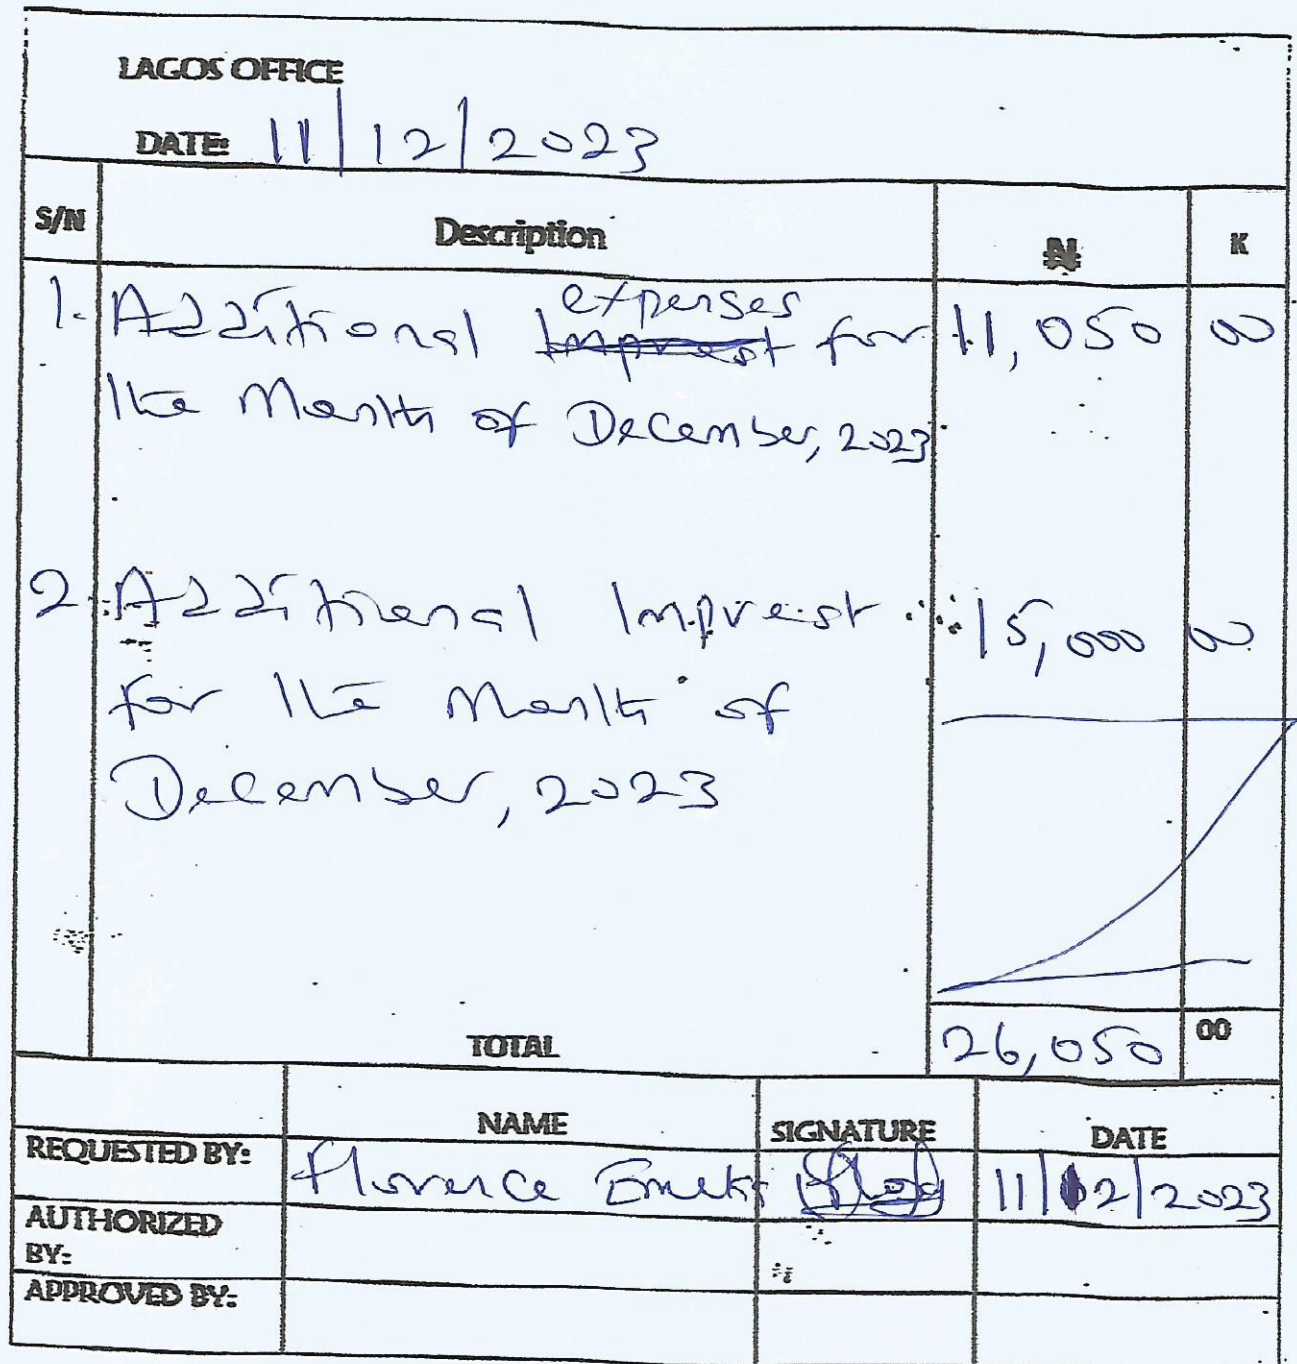 LAGOS OFFICE
DATE: 11/12/2023
S/N Description ₦ K
1. Additional Imprest expenses for 11,050 00
the Month of December, 2023
2. Additional Imprest 15,000 00
for the Month of
December, 2023
TOTAL 26,050 00
NAME SIGNATURE DATE
REQUESTED BY: Florence Emeka 11/12/2023
AUTHORIZED
BY:
APPROVED BY: